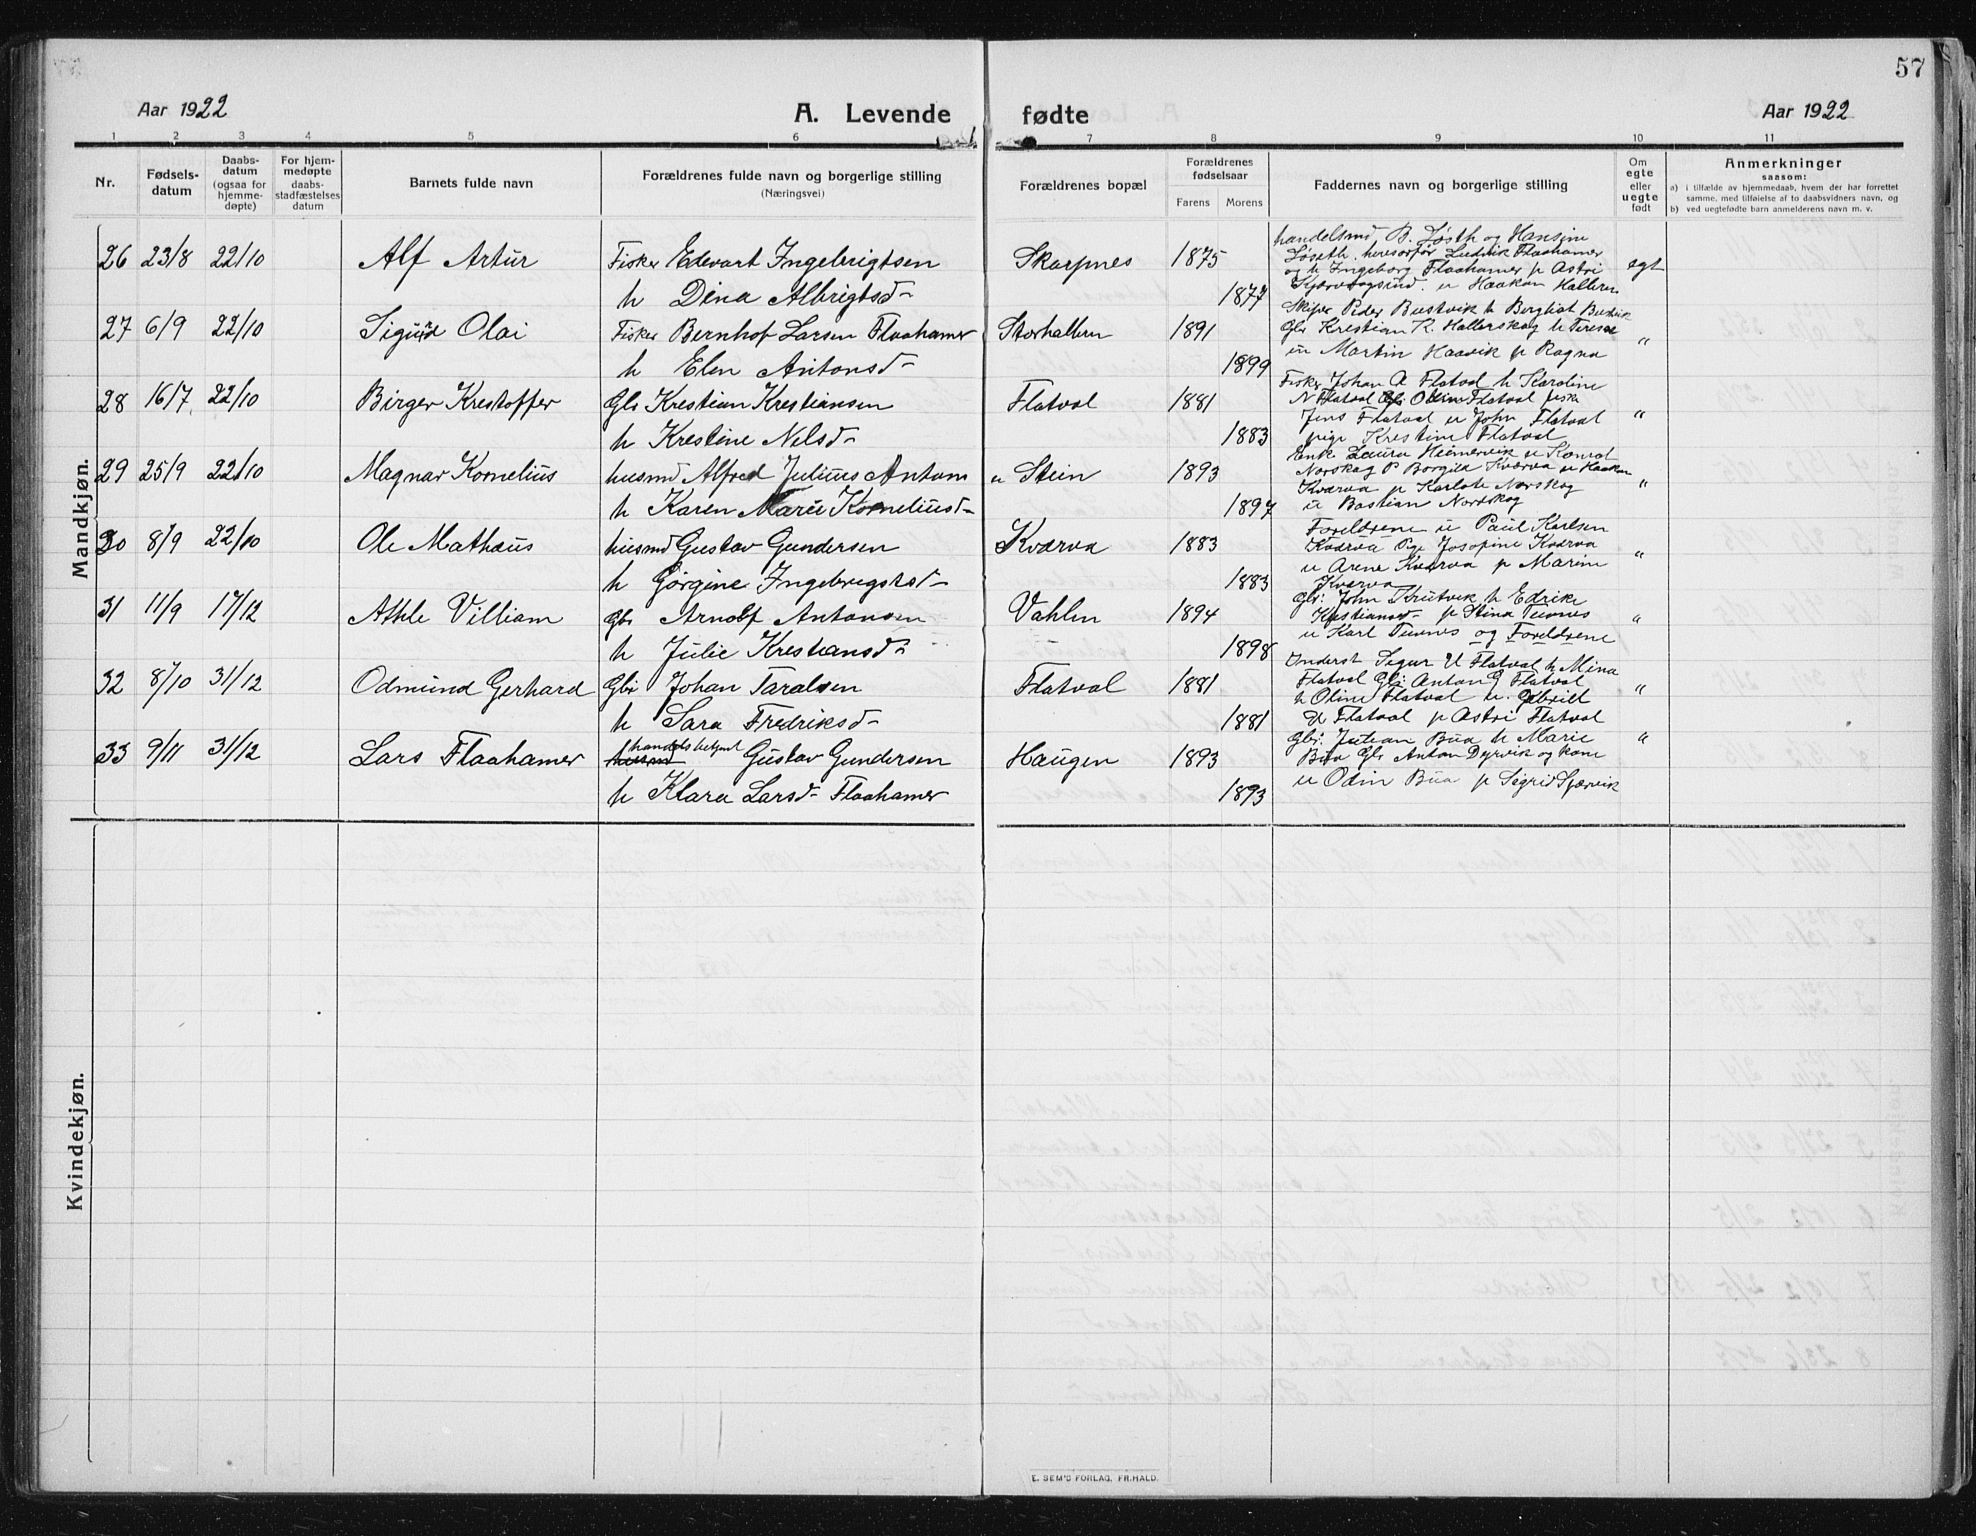 57
Aar 1922
A. Levende fødte
Aar 1922
1 2 3 4 5 6 7 8 9 10 11
Nr.
Fødsels-
datum
Daabs-
datum
(ogsaa for
hjemme-
døpte)
For hjem-
medøpte
daabs-
stadfæstelses
datum
Barnets fulde navn
Forældrenes fulde navn og borgerlige stilling
(Næringsvei)
Forældrenes bopæl
Forældrenes
fødselsaar
Farens Morens
Faddernes navn og borgerlige stilling
Om
egte
eller
uegte
født
Anmerkninger
saasom:
a) i tilfælde av hjemmedaab, hvem der har forrettet
samme, med tilføielse af to daabsvidners navn, og
b) ved uegtefødte barn anmelderens navn m. v.
Mandkjøn.
26 23/8 22/10 Alf Artur Fisker Edevart Ingebrigtsen Skarpnes 1875 egt
h Dina Albrigtsd- 1877
handelsmd B. Løsth og Hansine
Løseth, Ludvik Flaahamer
og h Ingeborg Flaahamer p Astri
u Haakon Halleren
27 6/9 22/10 Sigurd Olai Fisker Bernhof Larsen Flaahamer Storhallern 1891 "
h Elen Antonsd- 1899
Skiper Peder Bustvik h Bergliot Bustvik
Gbr Krestian R. Hallerskog h Terese
u Martin Haavik p Ragna
28 16/7 22/10 Birger Krestoffer Gbr Krestian Krestiansen Flatval 1881 "
h Krestine Nelsd- 1883
Fisker Johan A Flatval h Karoline
N Flatval Gbr Odin Flatval fisk
Jens Flatval u John Flatval
pige Krestine Flatval
29 25/9 22/10 Magnar Kornelius husmd Alfred Julius Antons " Stein 1893 "
h Karen Marie Korneliusd- 1897
Enk Laura Heimervik u Konrat
Norskag P Borgila Kværva u Haakon
Kværva p Karlote Norskog
u Bastian Nordskog
30 8/9 22/10 Ole Mathæus husmd Gustav Gundersen Kværva 1883 "
h Gørgine Ingebrigtsd- 1883
Foreldrene u Paul Karlsen
Kværva Pge Josefine Kværva
u Arne Kværva p Marim
Kværva
31 11/9 17/12 Athle Villiam Gbr Arnolf Antonsen Vahlen 1894 "
h Julie Krestiansd- 1898
Gbr: John Trutvik h Edrike
Krestiansd- p Stina Tuvnes
u Karl Tuvnes og Foreldrene
32 8/10 31/12 Odmund Gerhard Gbr Johan Taralsen Flatval 1881 "
h Sara Fredriksd- 1881
Inderst Sigur U Flatval h Mina
Flatval Gbr: Anton G Flatval
h Oline Flatval u. Gabriel
U Flatval p Astri Flatval
33 9/11 31/12 Lars Flaahamer husmd handelsbetjent Gustav Gundersen Haugen 1893 "
h Klara Larsd- Flaahamer 1893
Gbr: Julian Bua h Marie
Bua Gbr Anton Dyrvik og kone
u Odin Bua p Sigrid Sjærvik
Kvindekjøn.
E. SEM'S FORLAG, FR.HALD.